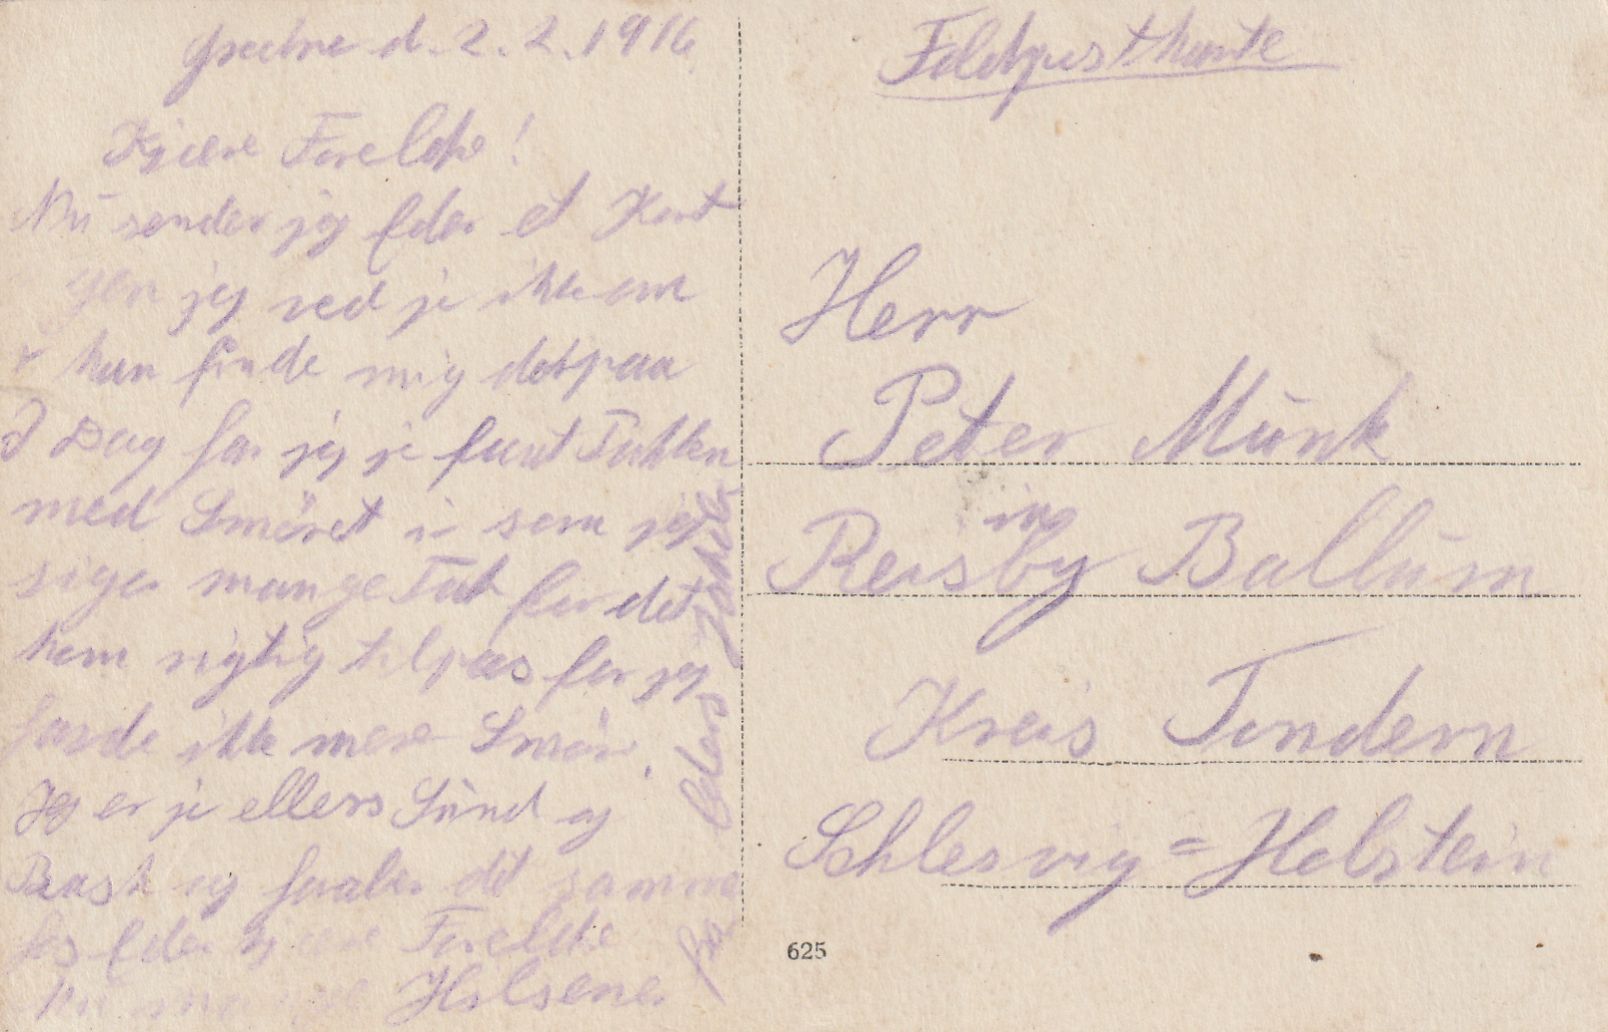 d. 2. 2. 1916
Kjære Foreldre!
Nu sender jeg Eder et Kort
jeg ved jo ikke om
I kan finde mig derpaa
I Dag har jeg jo faaet Pakken
med Smöret i som jeg
siger mange Tak for det
kom rigtig tilpas for jeg
havde ikke mere Smör.
Jeg er jo ellers Sund og
Rask og haaber det samme
hos Eder kjære Foreldre
Nu mange Hilsener
fra Eders
Feldpostkarte
Herr
Peter Münk
in
Reisby Ballum
Kreis Tondern
Schlesvig=Holstein
625